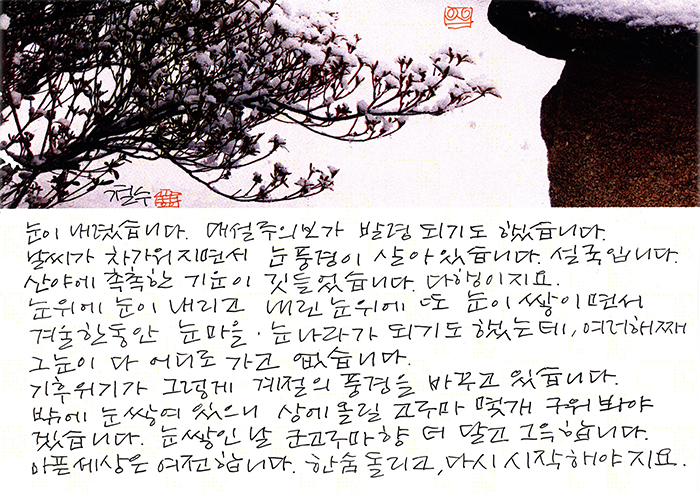 철수
눈이 내렸습니다. 대설주의보가 발령 되기도 했습니다.
날씨가 차가워지면서 눈풍경이 살아있습니다. 설국입니다.
산야에 촉촉한 기운이 깃들었습니다. 다행이지요.
눈위에 눈이 내리고 내린 눈위에 또 눈이 쌓이면서
겨울한동안 눈마을·눈나라가 되기도 했는데, 여러해째
그눈이 다 어디로 가고 없습니다.
기후위기가 그렇게 계절의 풍경을 바꾸고 있습니다.
밖에 눈쌓여 있으니 상에올릴 고구마 몇개 구워 봐야
겠습니다. 눈쌓인 날 군고구마향 더 달고 그윽합니다.
아픈세상은 여전합니다. 한숨 돌리고, 다시 시작해야지요.